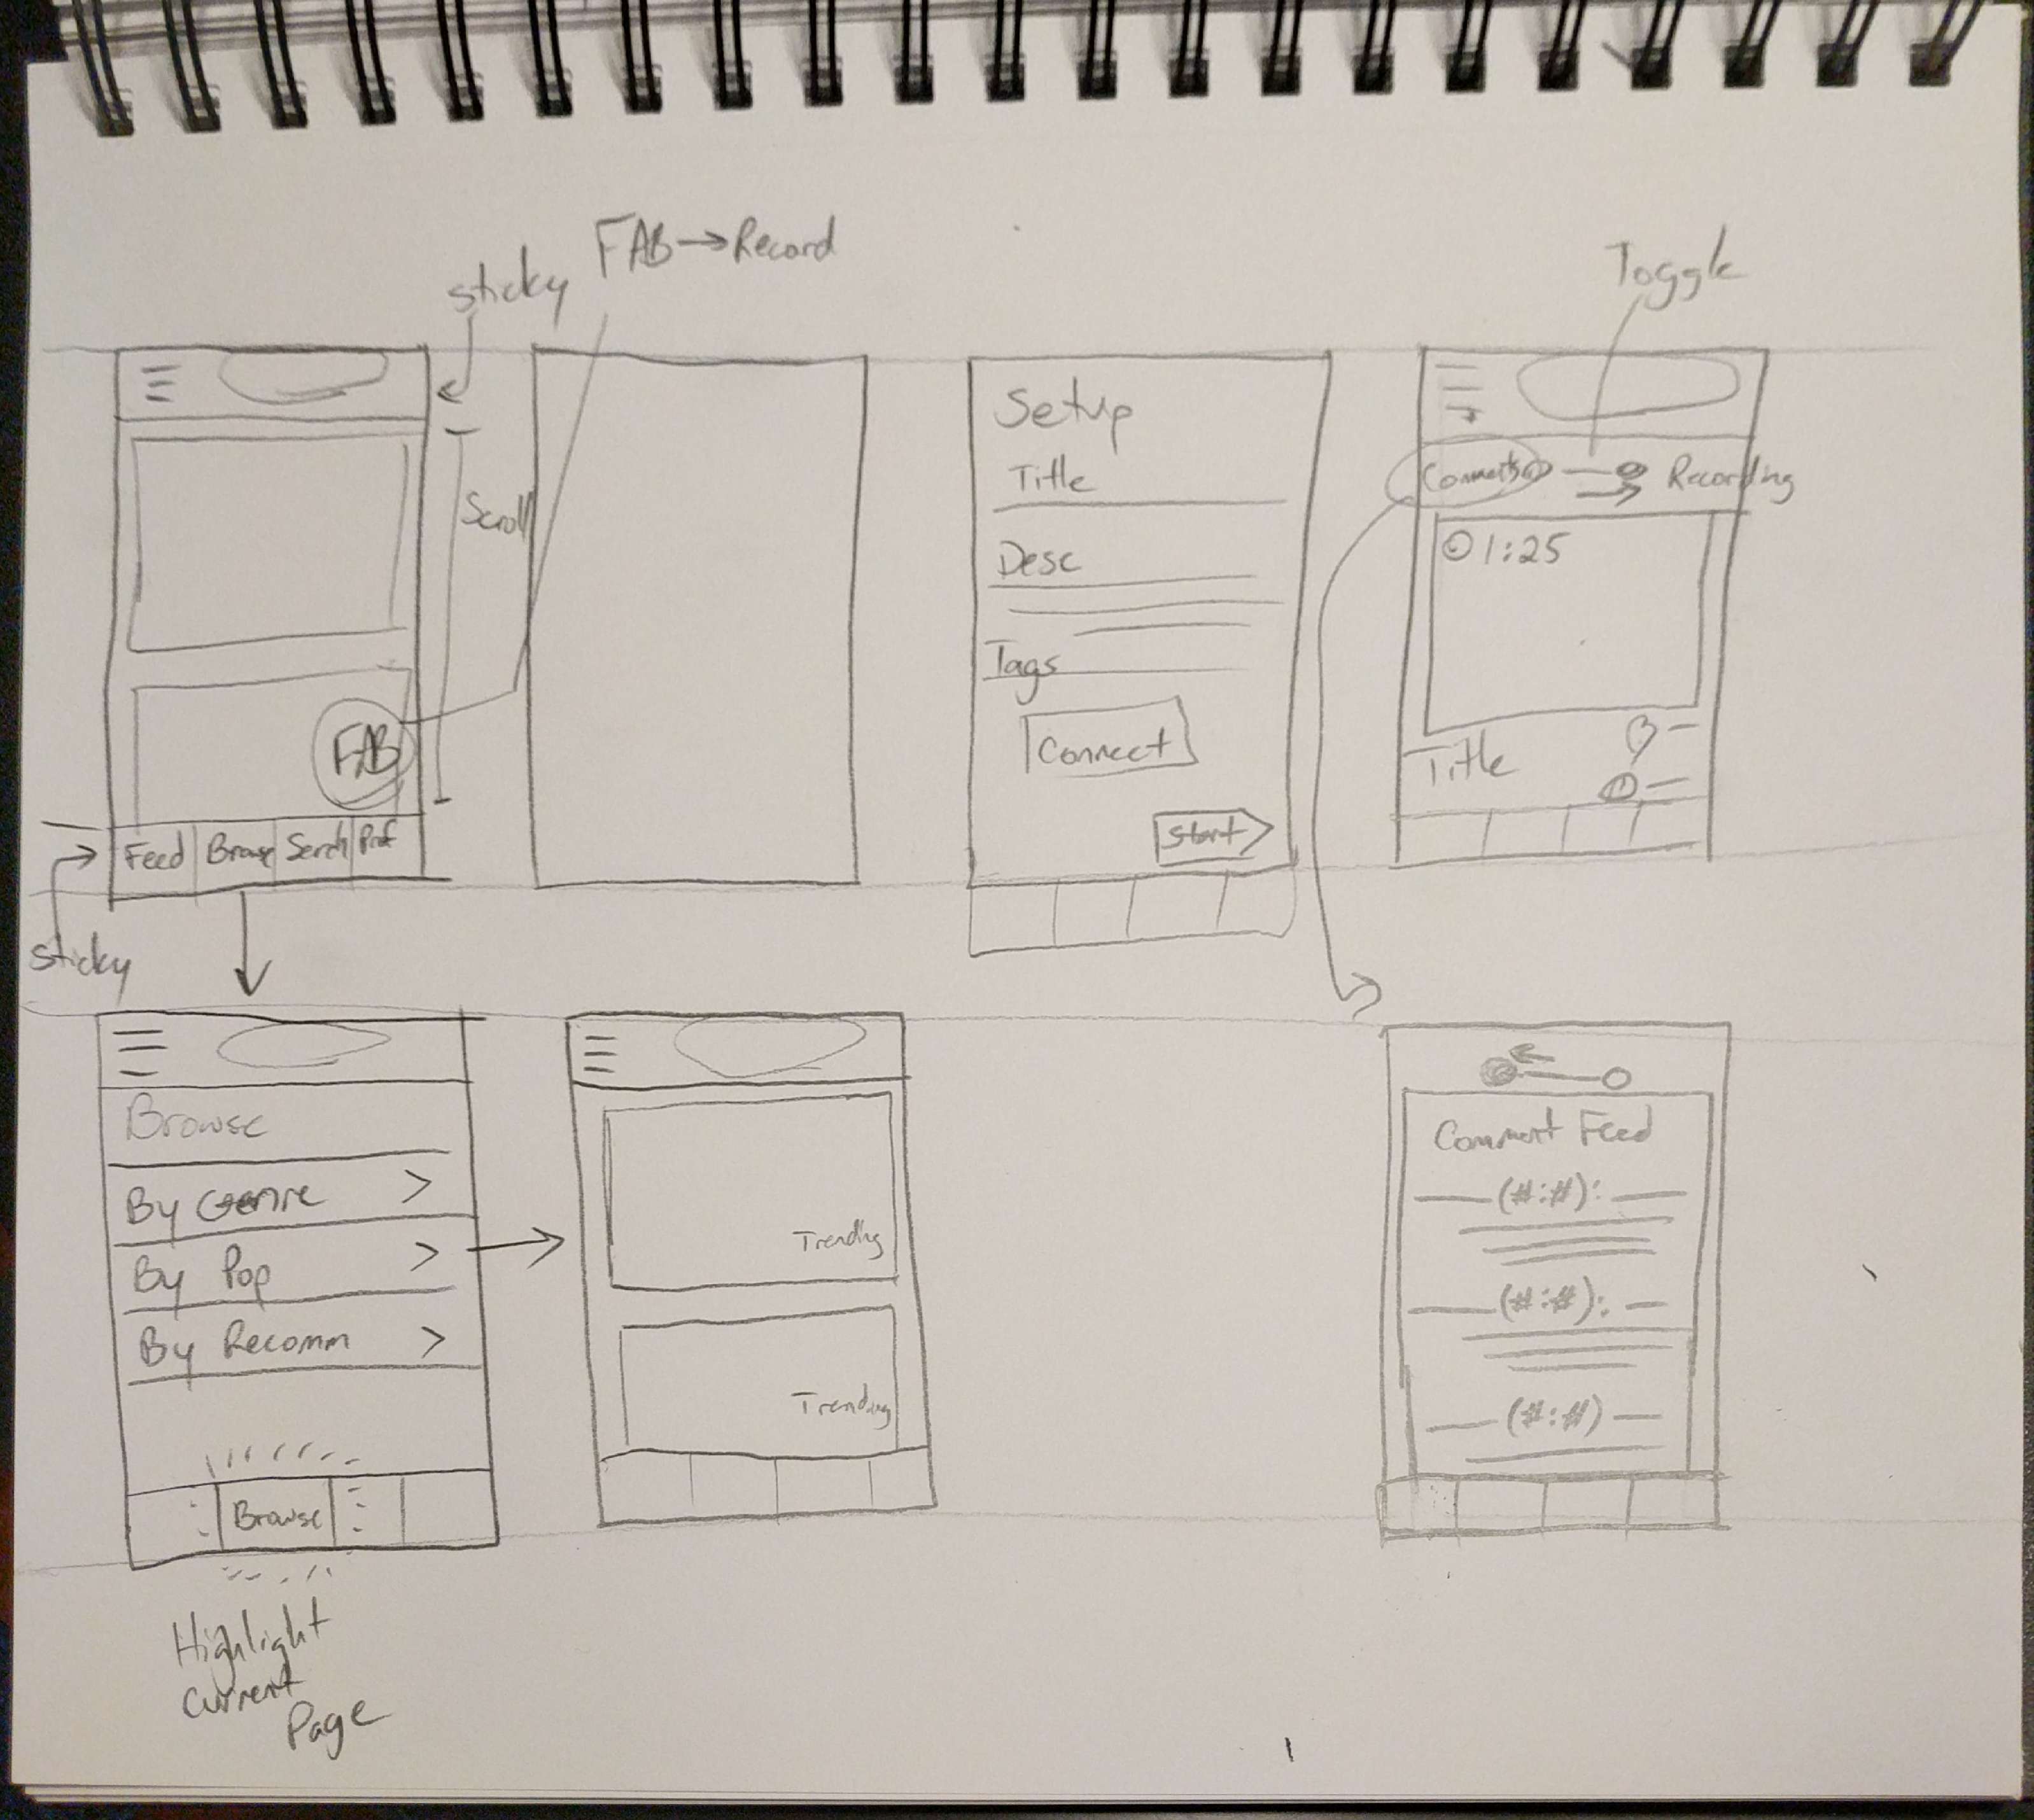 FAB→Record
sticky
Toggle
Scroll
FAB
Feed
Browse
Serch
Prof
sticky
Setup
Title
Desc
Tags
Connect
Start
Recording
1:25
Title
Browse
By Genre >
By Pop >
By Recomm >
Browse
Highlight
Current
Page
Trending
Trending
Comment Feed
(#:#):
(#:#):
(#:#)